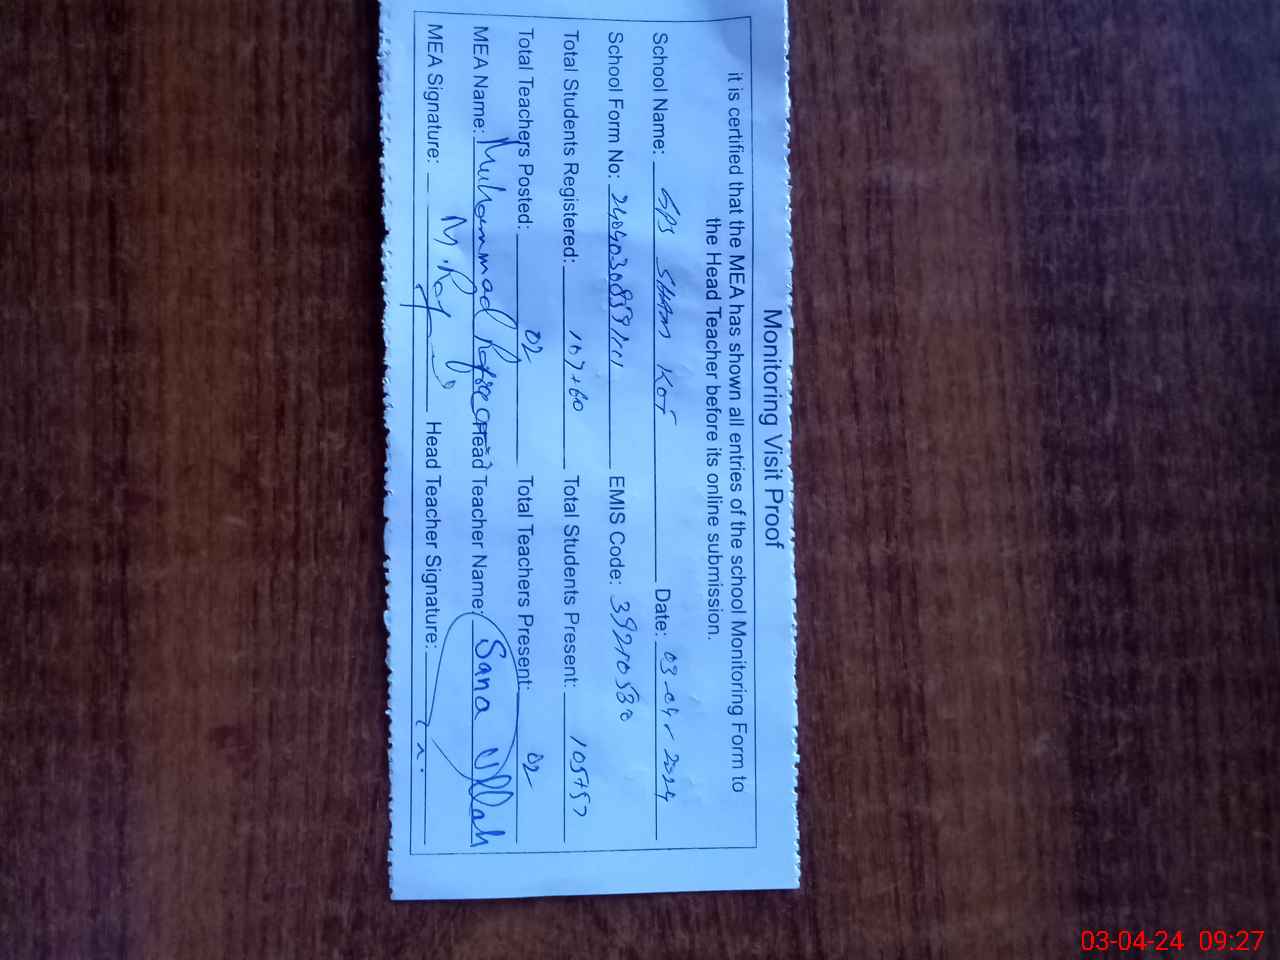 Monitoring Visit Proof
it is certified that the MEA has shown all entries of the school Monitoring Form to
the Head Teacher before its online submission.
School Name: GPS SHAM KOT Date: 03-04-2024
School Form No: EMIS Code: 39210580
Total Students Registered: 107+60 Total Students Present: 105+57
Total Teachers Posted: 02 Total Teachers Present: 02
MEA Name: Muhammad Head Teacher Name: Sana Ullah
MEA Signature: Head Teacher Signature:
03-04-24 09:27